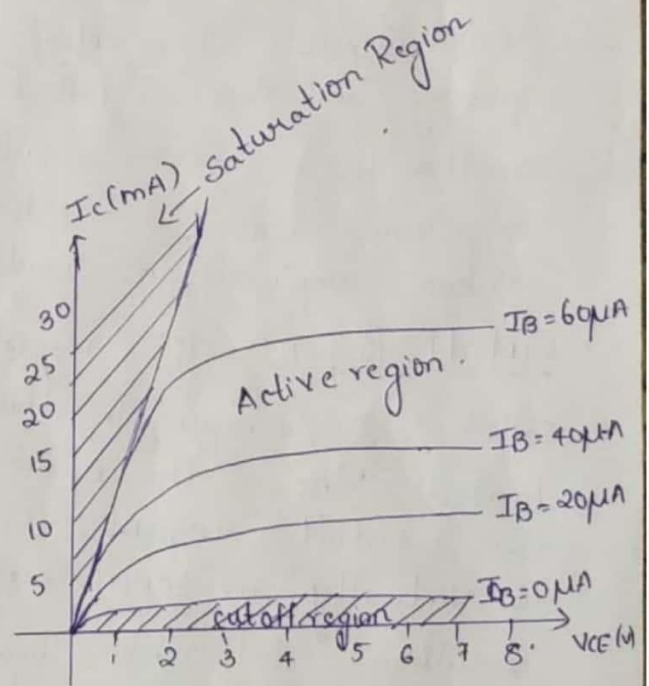 Saturation Region
Ic(mA)
30
25
20
15
10
5
IB=60μA
Active region.
IB=40μA
IB=20μA
IB=0μA
cutoff region
1 2 3 4 5 6 7 8
VCE(v)